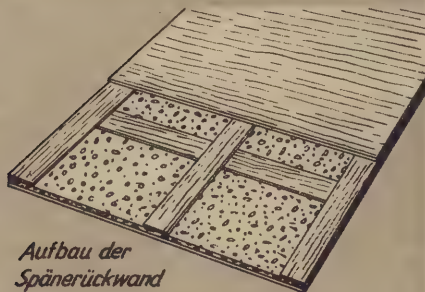 Aufbau der
Spänerückwand